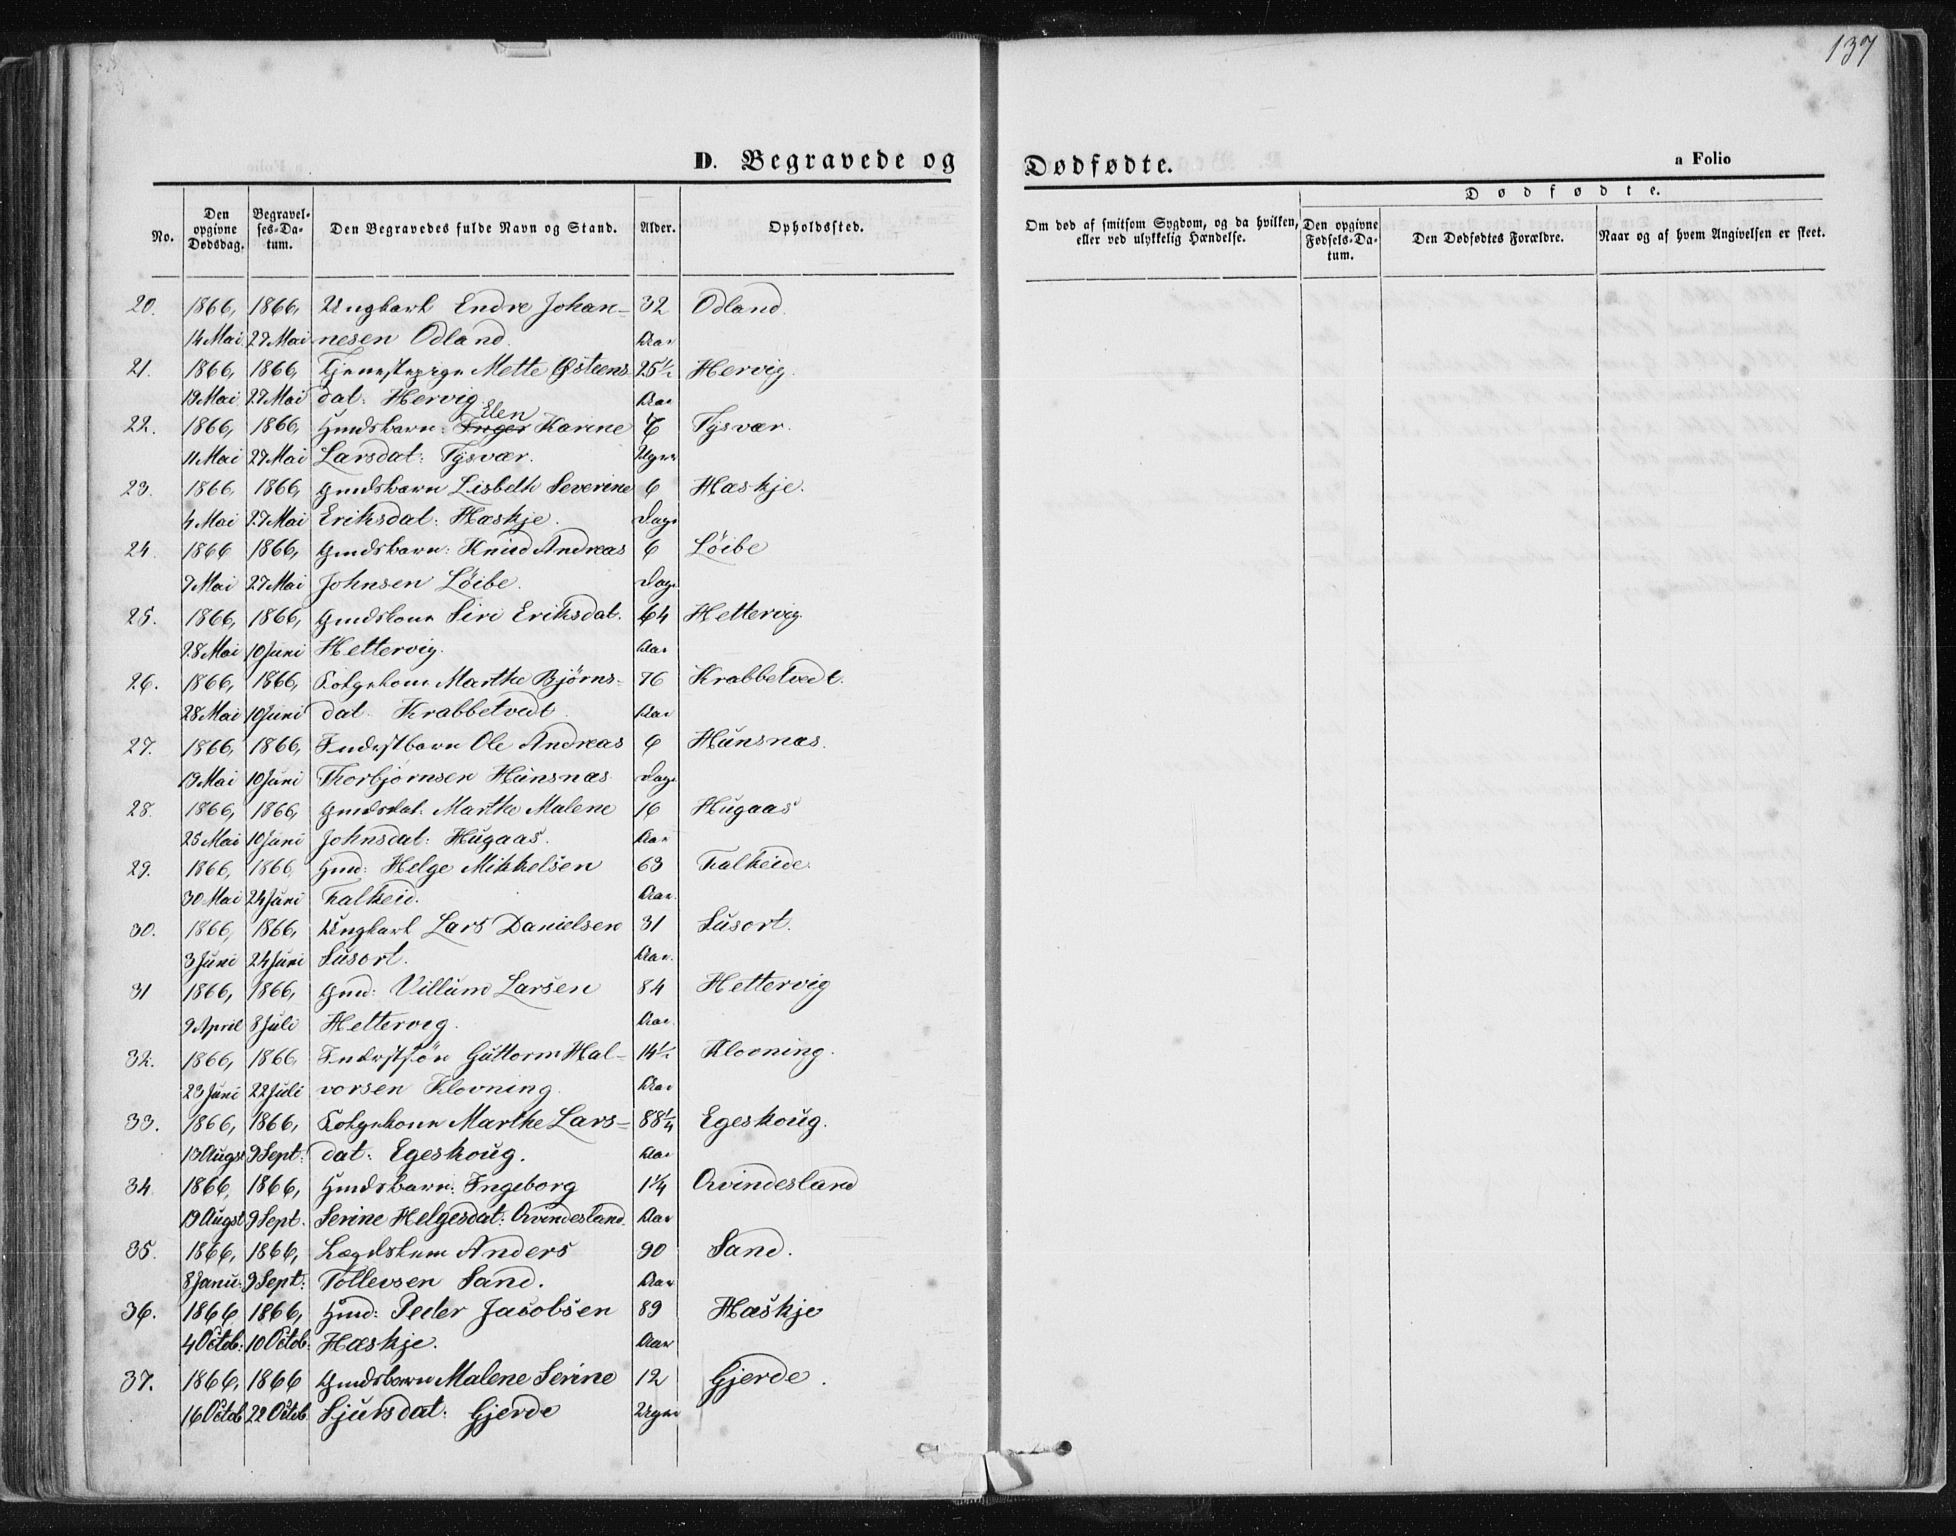 137
D. Begravede og Dødfødte.
a Folio
No.
Den opgivne Dødsdag.
Begravelses-Datum.
Den Begravedes fulde Navn og Stand.
Alder.
Opholdssted.
Om død af smitsom Sygdom, og da hvilken, eller ved ulykkelig Hændelse.
Dødfødte.
Den opgivne Fødsels-Datum.
Den Dødfødtes Forældre.
Naar og af hvem Angivelsen er skeet.
20. 1866, 1866, Ungkarl Endre Johan- 32 Odland.
14 Mai 27 Mai nesen Odland. Aar
21. 1866, 1866, Tjenestepige Mette Østeens 25½ Hervig.
19 Mai 27 Mai dat: Hervig. Aar
Elen
22. 1866, 1866, Gmdsbarn: Inger Karine 7 Tysvær.
11 Mai 27 Mai Larsdat: Tysvær. Uger
23. 1866, 1866, Gmdsbarn Lisbeth Severine 6 Hæskje.
4 Mai 27 Mai Eriksdat: Hæskje. Dage
24. 1866 1866, Gmdsbarn: Knud Andreas 6 Løibe
7 Mai 27 Mai Johnsen Løibe. Dage
25. 1866, 1866, Gmdskone Siri Eriksdat. 64 Hettervig.
28 Mai 10 Juni Hettervig. Aar
26. 1866, 1866, Folgekone Marthe Bjørns- 76 Krabbetvedt.
28 Mai 10 Juni dat. Krabbetvedt. Aar
27. 1866, 1866, Inderstbarn Ole Andreas 6 Hunsnæs.
19 Mai 10 Juni Thorbjørnsen Hunsnæs. Dage
28. 1866, 1866, Gmdsdat: Marthe Malene 16 Hugaas
25 Mai 10 Juni Johnsdat: Hugaas. Aar
29. 1866, 1866, Gmd: Helge Mikkelsen 63 Falkeide.
30 Mai 24 Juni Falkeid. Aar.
30. 1866, 1866, Ungkarl Lars Danielsen 31 Susort.
3 Juni 24 Juni Susort. Aar.
31 1866, 1866, Gmd: Villum Larsen 84 Hettervig
9 April 8 Juli Hettervig. Aar.
32. 1866, 1866, Inderstsøn Guttorm Hal- 14½ Klovning.
23 Juni 22 Juli vorsen Klovning. Aar
33. 1866, 1866, Folgekone Marthe Lars- 88¼ Egeskoug.
13 Augst 9 Sept: dat: Egeskoug. Aar
34. 1866, 1866, Gmdsbarn: Ingeborg 1¼ Qvindesland
19 Augst 9 Sept. Serine Helgesdat: Qvindesland. Aar
35. 1866, 1866, Lægdslem Anders 90 Sand.
8 Janu: 9 Sept: Tollevsen Sand. Aar
36. 1866 1866, Gmd: Peder Jacobsen 89 Hæskje
4 Octob: 10 Octob: Hæskje. Aar
37. 1866, 1866 Gmdsbarn Malene Serine 12 Gjerde.
16 Octob 22 Octob. Sjursdat: Gjerde Uger